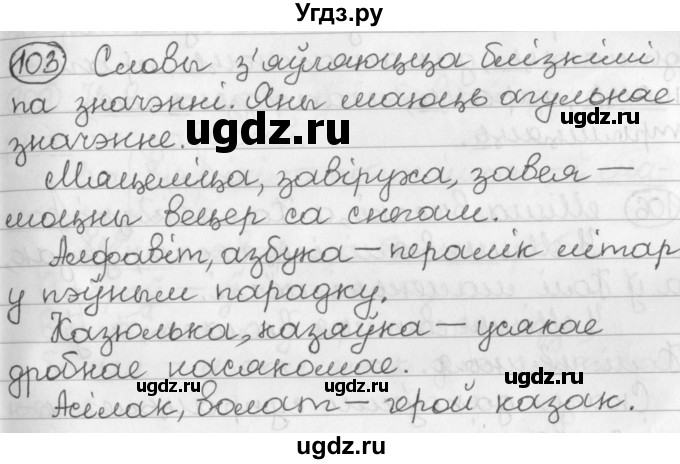 Угдз.ру
103 Словы з'яўляюцца блізкімі
па значэнні. Яны маюць агульнае
значэнне.
ugdz.ru ugdz.ru
Мяцеліца, завіруха, завея —
моцны вецер са снегам.
Алфавіт, азбука — пералік літар
у пэўным парадку.
Казюлька, казяўка — усякае
дробнае насякомае.
ugdz.ru ugdz.ru ugdz.ru
Асілак, волат — герой казак.
ugdz.ru